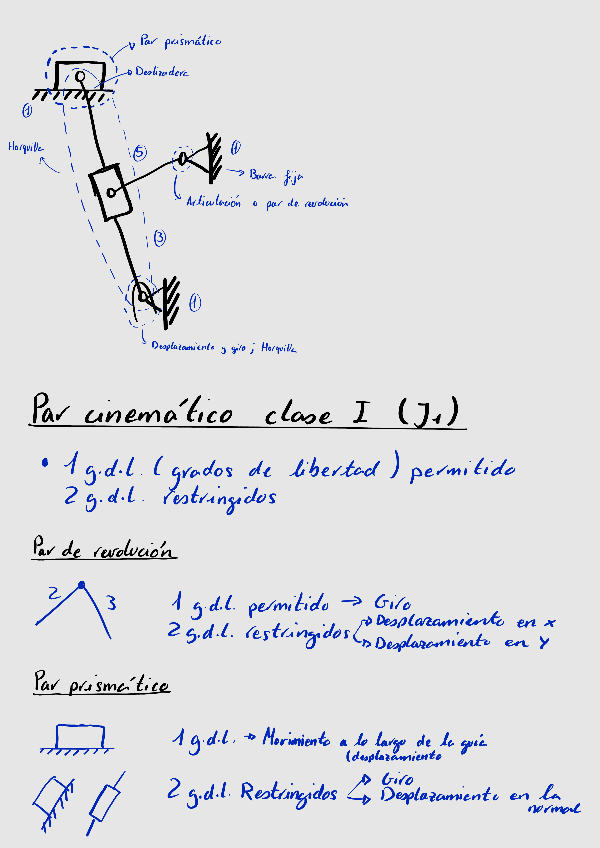 Par prismático
Deslizadera
1
Horquilla
5
1
Barra fija
Articulación o par de revolución
3
1
Desplazamiento y giro; Horquilla
Par cinemático clase I (J1)
• 1 g.d.l. (grados de libertad) permitido
2 g.d.l. restringidos
Par de revolución
2 3
1 g.d.l. permitido → Giro
2 g.d.l. restringidos → Desplazamiento en x
→ Desplazamiento en Y
Par prismático
1 g.d.l. → Movimiento a lo largo de la guía
(desplazamiento
2 g.d.l. Restringidos → Giro
→ Desplazamiento en la
normal